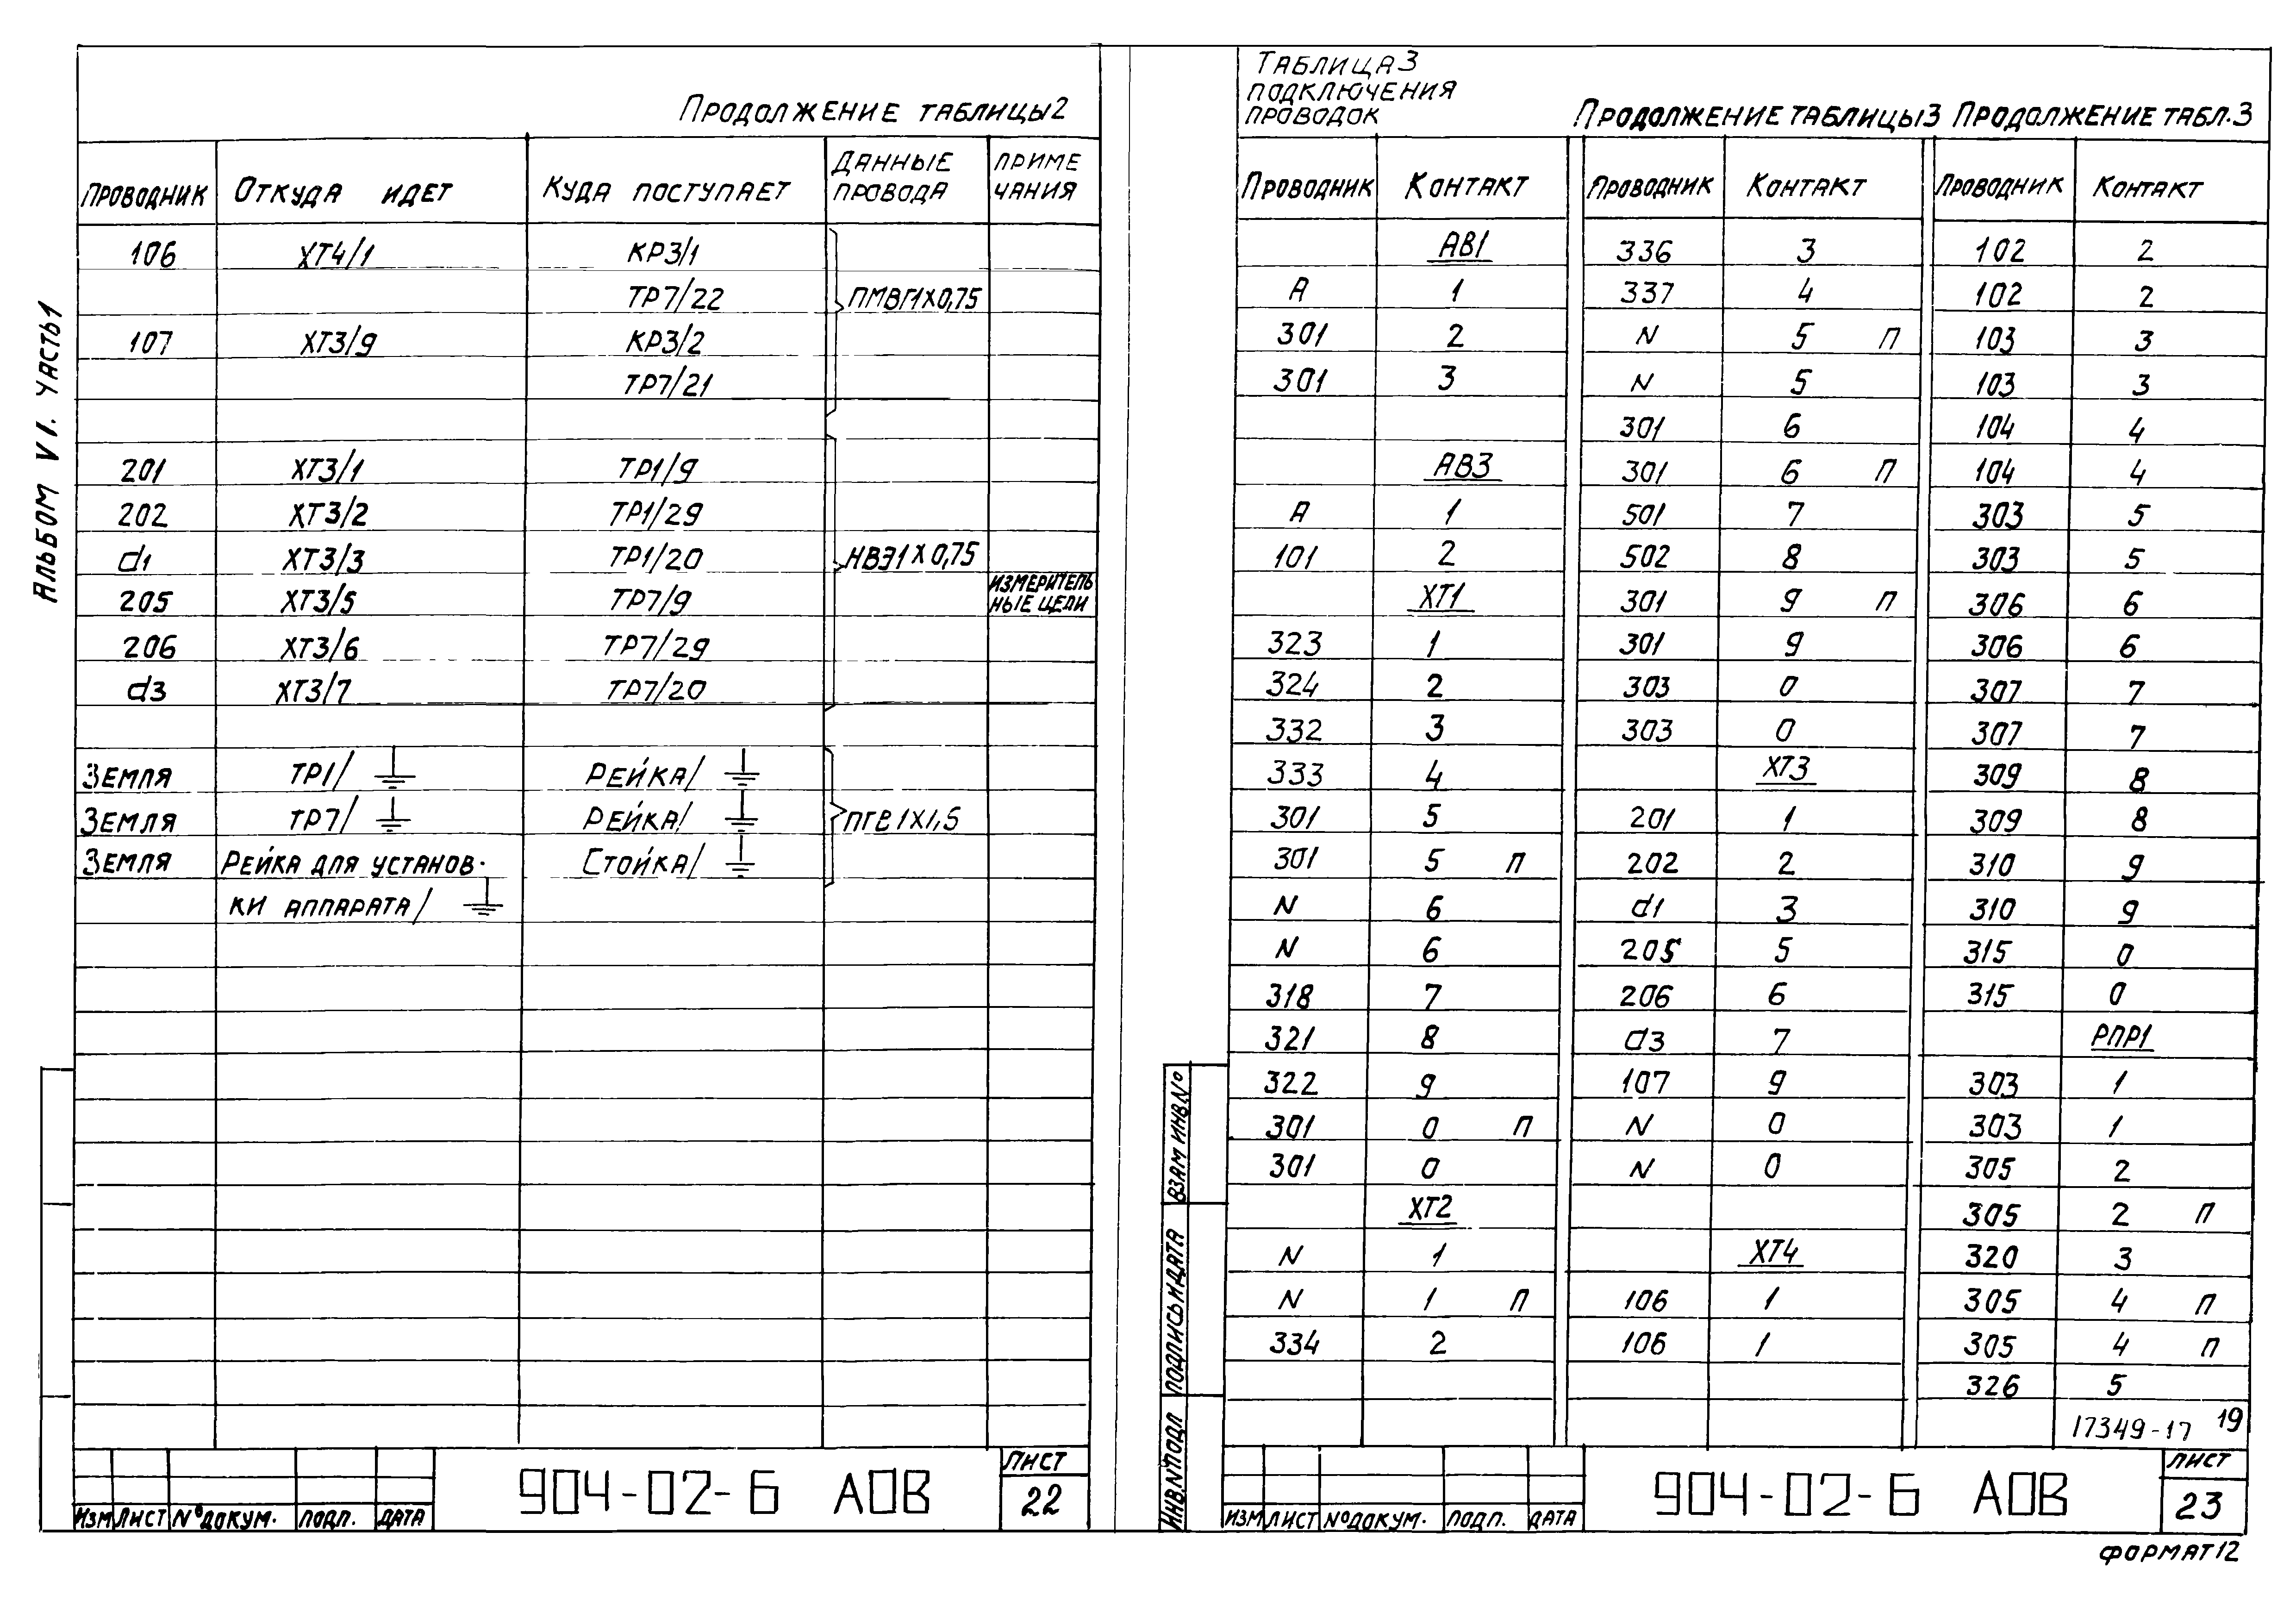 Альбом VI. Часть 1
Продолжение таблицы 2
Проводник Откуда идет Куда поступает Данные провода Приме чания
106 ХТ4/1 КР3/1
ТР7/22 ПМВГ1Х0,75
107 ХТ3/9 КР3/2
ТР7/21
201 ХТ3/1 ТР1/9
202 ХТ3/2 ТР1/29
d1 ХТ3/3 ТР1/20 НВЭ1Х0,75
205 ХТ3/5 ТР7/9 Измеритель ные цепи
206 ХТ3/6 ТР7/29
d3 ХТ3/7 ТР7/20
Земля ТР1/⏚ Рейка/⏚
Земля ТР7/⏚ Рейка/⏚ ПГВ1Х1,5
Земля Рейка для установ- Стойка/⏚
ки аппарата/⏚
Изм Лист № докум. Подп. Дата
904-02-6 АОВ
Лист
22
Таблица 3
подключения
проводок
Проводник Контакт
АВ1
А 1
301 2
301 3
АВ3
А 1
101 2
ХТ1
323 1
324 2
332 3
333 4
301 5
301 5 П
N 6
N 6
318 7
321 8
322 9
301 0 П
301 0
ХТ2
N 1
N 1 П
334 2
Продолжение таблицы 3
Проводник Контакт
336 3
337 4
N 5 П
N 5
301 6
301 6 П
501 7
502 8
301 9 П
301 9
303 0
303 0
ХТ3
201 1
202 2
d1 3
205 5
206 6
d3 7
107 9
N 0
N 0
ХТ4
106 1
106 1
Продолжение табл. 3
Проводник Контакт
102 2
102 2
103 3
103 3
104 4
104 4
303 5
303 5
306 6
306 6
307 7
307 7
309 8
309 8
310 9
310 9
315 0
315 0
РПР1
303 1
303 1
305 2
305 2 П
320 3
305 4 П
305 4 П
326 5
17349-17 19
Взам инв №
Подпись и дата
Инв. № подл
Изм Лист № докум. Подп. Дата
904-02-6 АОВ
Лист
23
Формат 12